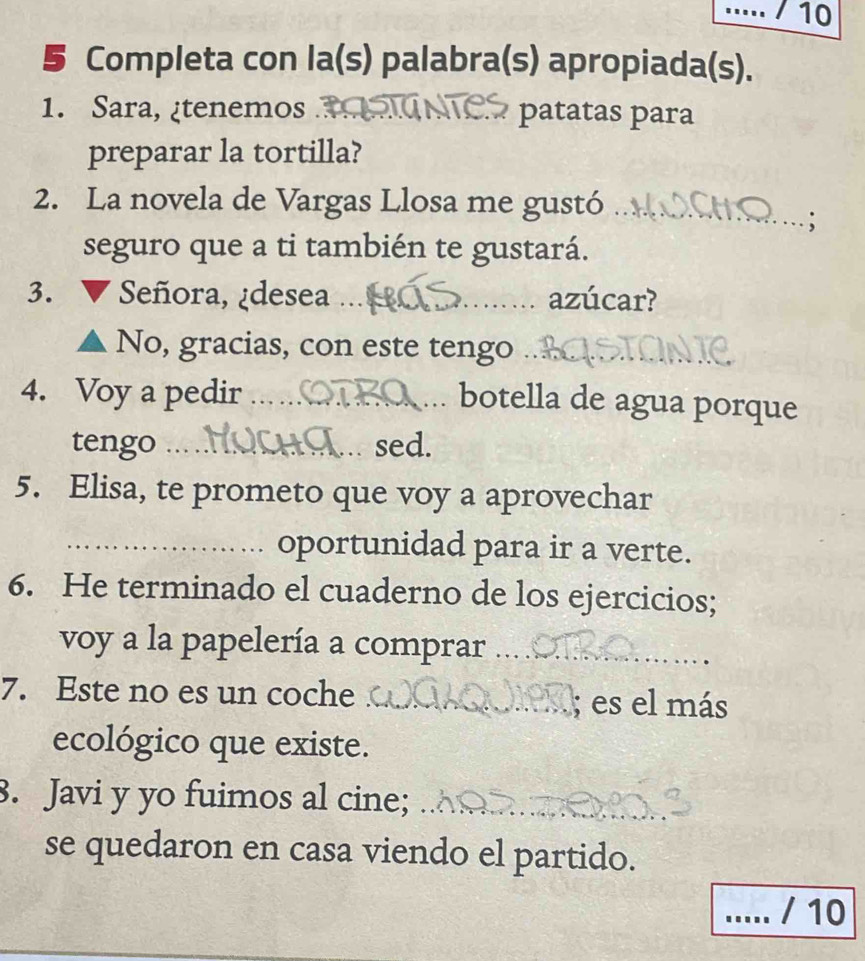 ..... / 10
5 Completa con la(s) palabra(s) apropiada(s).
1. Sara, ¿tenemos BASTANTES patatas para
preparar la tortilla?
2. La novela de Vargas Llosa me gustó MUCHO;
seguro que a ti también te gustará.
3. ▼ Señora, ¿desea MÁS azúcar?
▲ No, gracias, con este tengo BASTANTE
4. Voy a pedir OTRA botella de agua porque
tengo MUCHA sed.
5. Elisa, te prometo que voy a aprovechar
.................... oportunidad para ir a verte.
6. He terminado el cuaderno de los ejercicios;
voy a la papelería a comprar OTRO.
7. Este no es un coche ; es el más
ecológico que existe.
8. Javi y yo fuimos al cine;
se quedaron en casa viendo el partido.
..... / 10